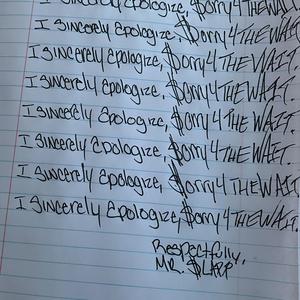 I Sincerely Epologize, $orry4THEWAIT.
I Sincerely Epologize, $orry4THEWAIT.
I Sincerely Epologize, $orry4THEWAIT.
I Sincerely Epologize, $orry4THEWAIT.
I Sincerely Epologize, $orry4THEWAIT.
I Sincerely Epologize, $orry4THEWAIT.
I Sincerely Epologize, $orry4THEWAIT.
I Sincerely Epologize, $orry4THEWAIT.
Respectfully,
MR. $LAPP